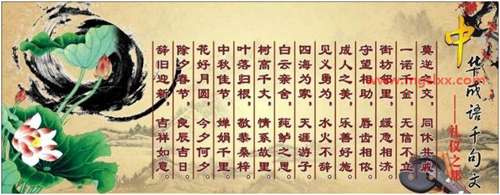 中华成语千句文
——礼仪之邦
莫逆之交，同休共戚。
一诺千金，无信不立。
街坊邻里，缓急相济。
守望相助，唇齿相依。
成人之美，乐善好施。
见义勇为，水火不辞。
四海为家，天涯游子。
白云亲舍，莼鲈之思。
树高千丈，情系故里。
叶落归根，敬恭桑梓。
中秋佳节，婵娟千里。
花好月圆，今夕何夕。
除夕春节，良辰吉日。
辞旧迎新，吉祥如意。